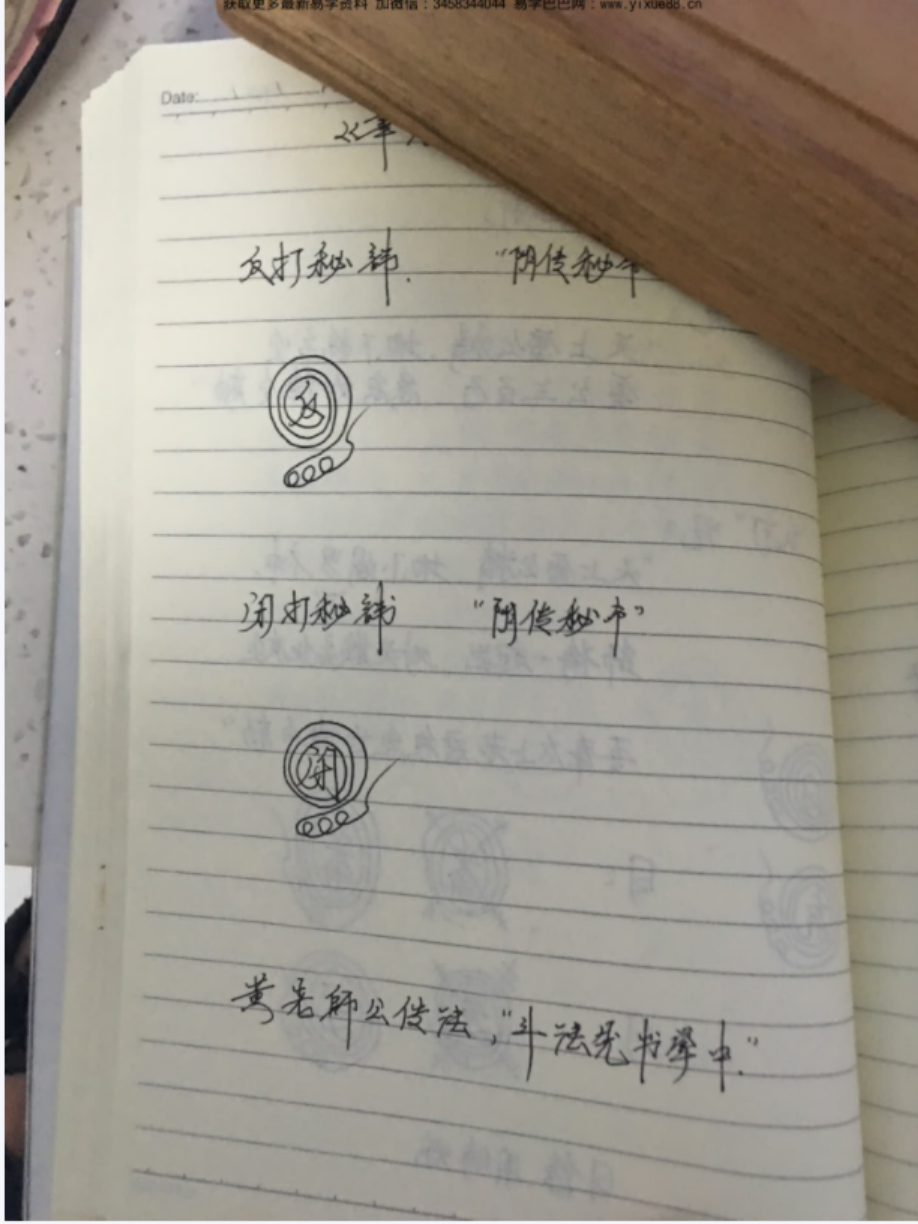 获取更多最新易学资料 加微信：3458344044 易学巴巴网：www.yixue88.cn
Date:
反打秘讳. “阴传秘书
反
闭打秘讳 “阴传秘书”
闭
黄老师公传法，“斗法先书掌中.”